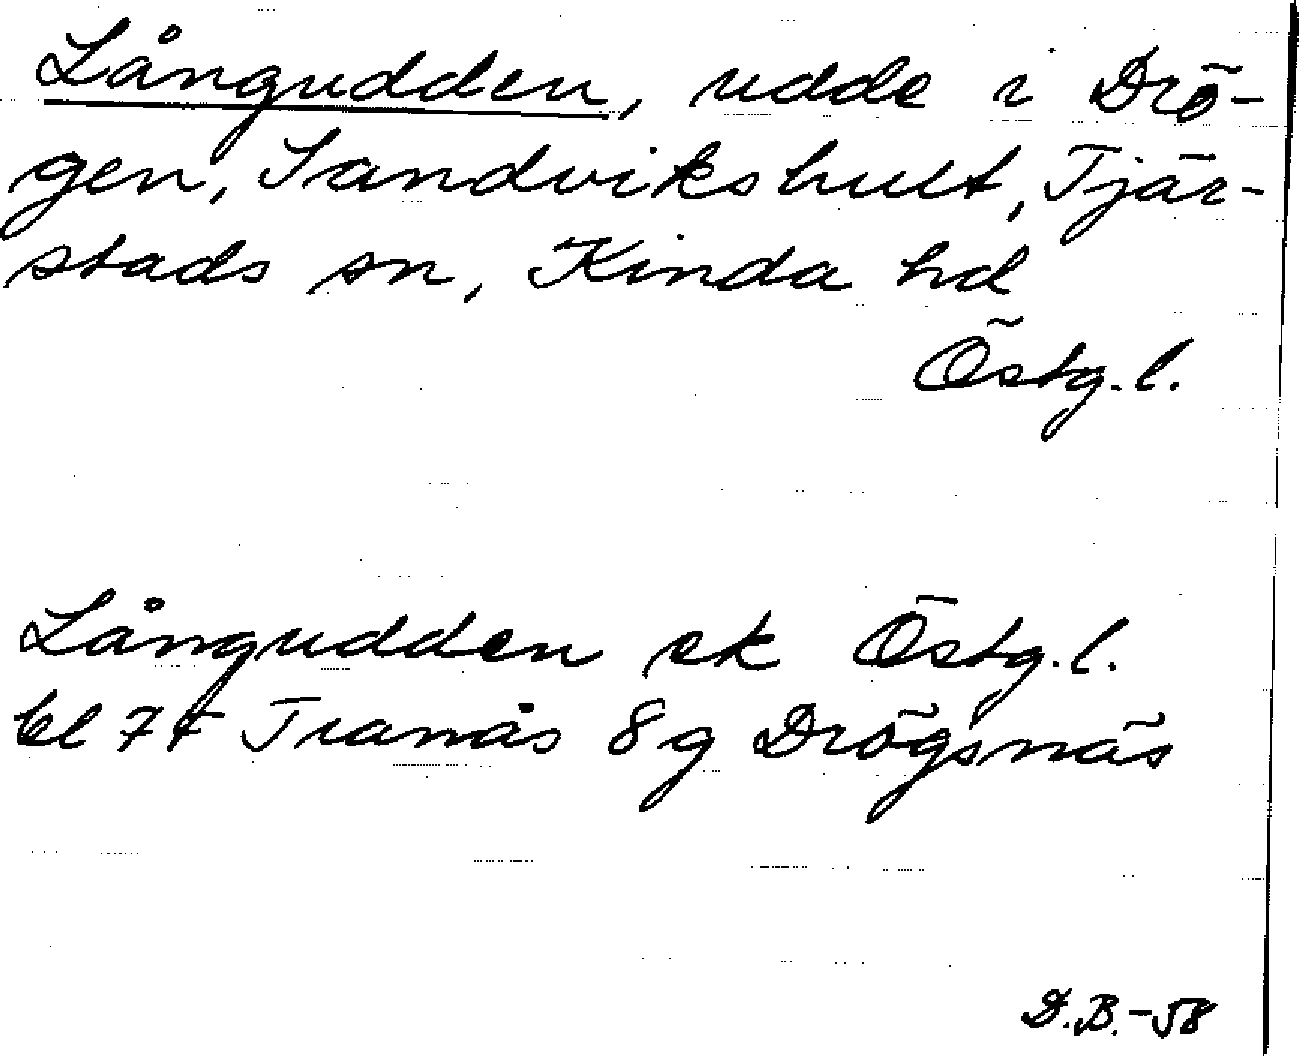 Långudden, udde i Drö-
gen, Sandvikshult, Tjär-
stads sn, Kinda hd
Östg.l.
Långudden ek Östg.l.
bl 77 Tranås 8g Drögsnäs
D.B.-58